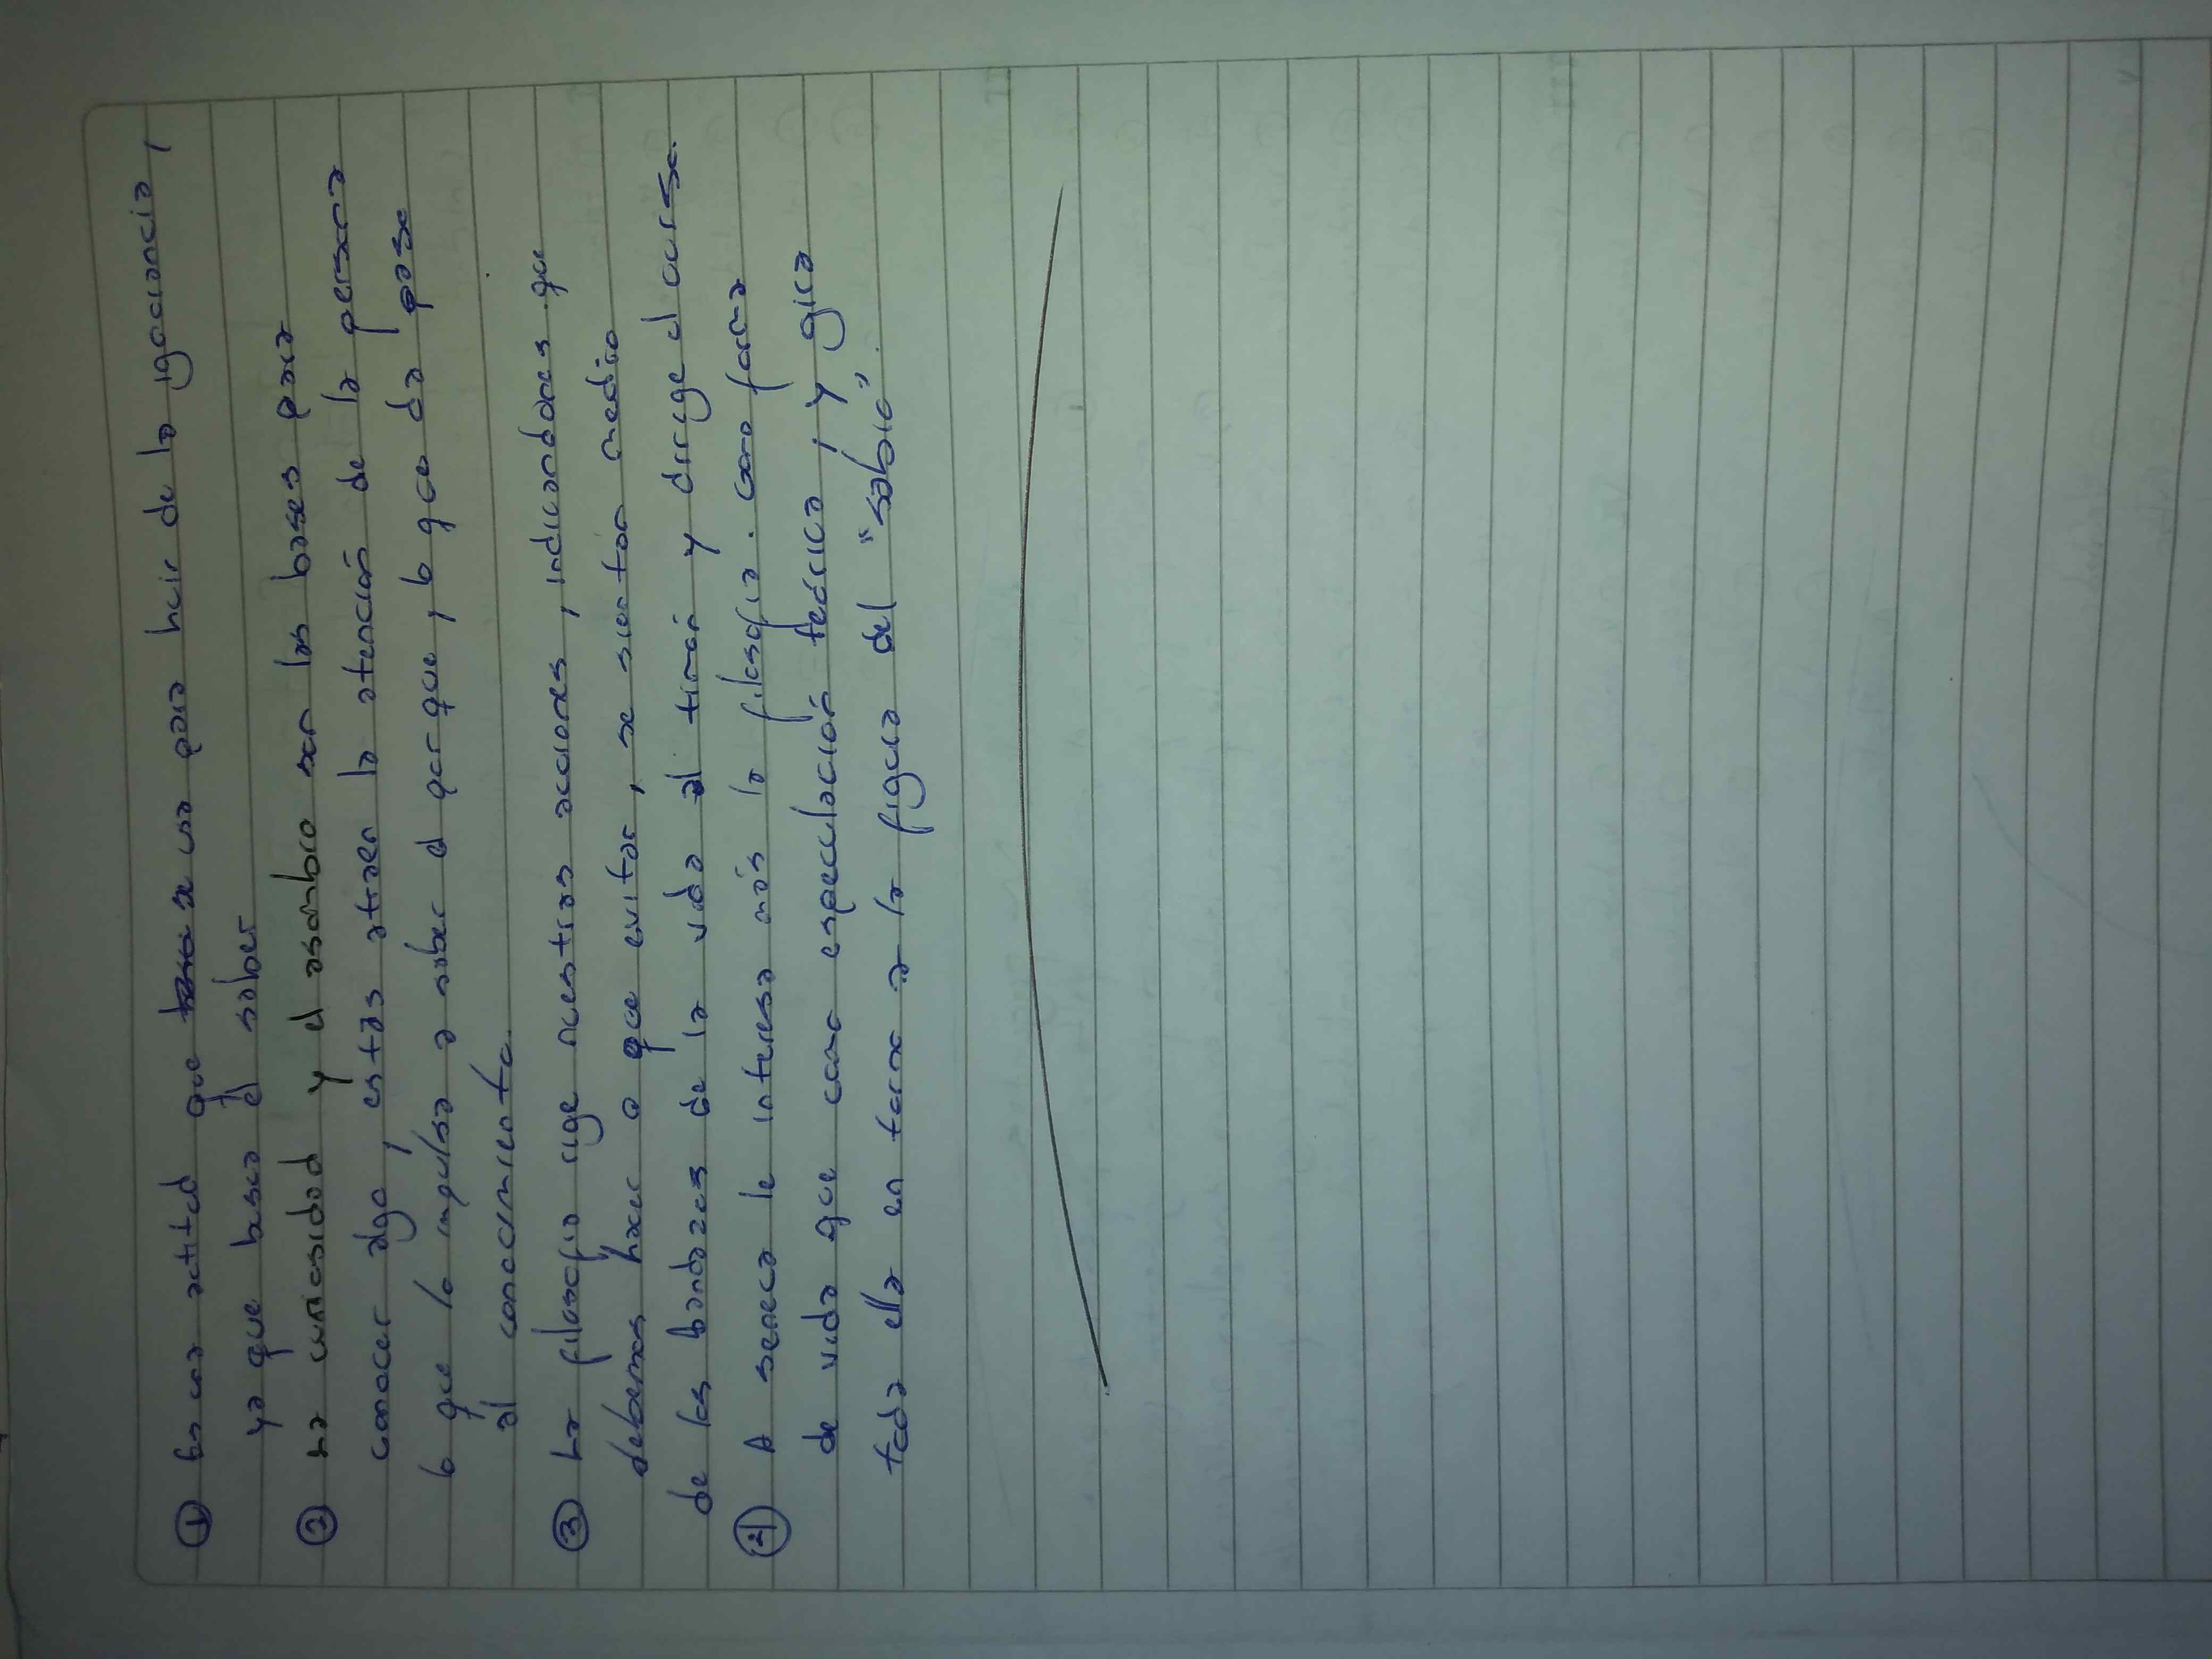 ① Es una actitud que se usa para huir de la ignorancia,
ya que busca el saber
② La curiosidad y el asombro son las bases para
conocer algo, estas atraen la atención de la persona
lo que lo impulsa a saber el por que, lo que da paso
al conocimiento.
③ La filosofia rige nuestras acciones, indicandones que
debemos hacer o que evitar, se sienta en medio
de los bandazos de la vida al timón y dirige el curso.
④ A seneca le interesa más la filosofia. como forma
de vida que como especulación teórica, y gira
toda ella en torno a la figura del "sabio".